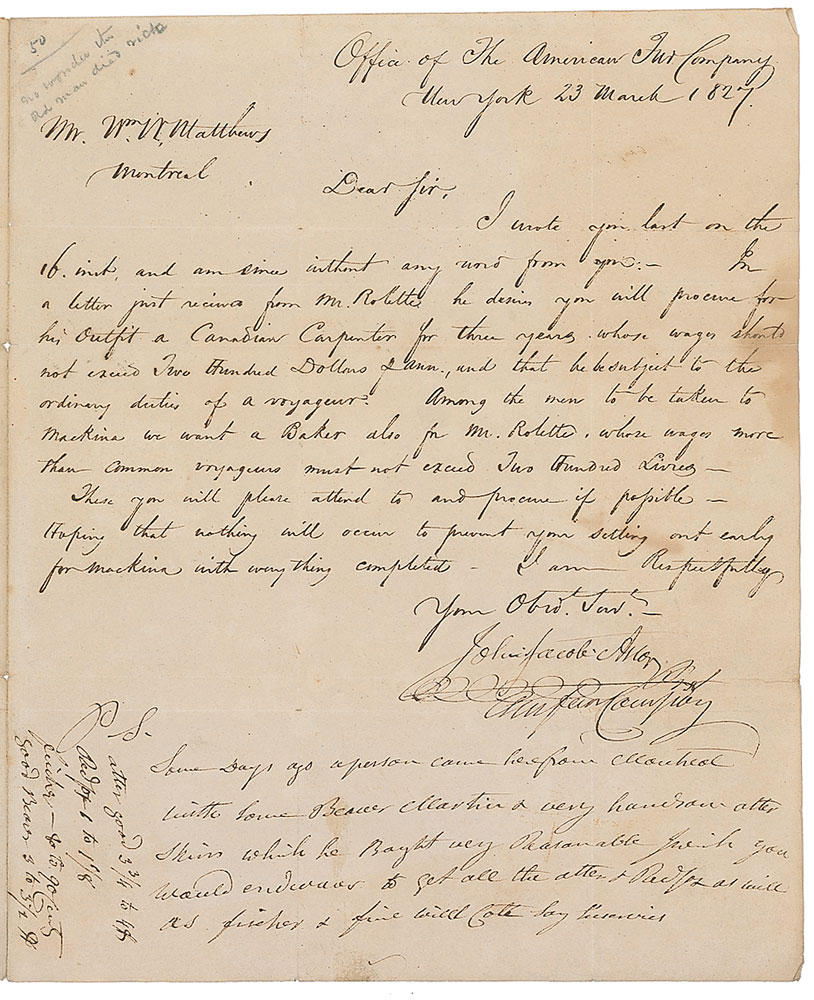 50
no wonder the
old man died rich
Office of The American Fur Company
New York 23 March 1827.
Mr. Wm. W. Matthews
Montreal
Dear Sir,
I wrote you last on the
16. inst, and am since without any word from you. — In
a letter just received from Mr. Rolette he desires you will procure for
his Outfit a Canadian Carpenter for three years whose wages should
not exceed Two Hundred Dollars ann., and that he be subject to the
ordinary duties of a voyageur. Among the men to be taken to
Mackina we want a Baker also for Mr. Rolette, whose wages more
than common voyageurs must not exceed Two Hundred Livres —
These you will please attend to and procure if possible —
Hoping that nothing will occur to prevent your setting out early
for Mackina with everything completed — I am Respectfully
Your Obedt. Servt. —
John Jacob Astor
Am Fur Company
P.S.
Some Days ago a person came here from Montreal
with some Beaver Martin & very handsom otter
Skins which he Baght very Reasonable I wish you
would endevaor to get all the otter & Redfox as will
as fischer & fine will Cats Say Luservies
otter good 3 3/4 to 4$
Redfox 1 to 1 1/8
fischer — 80 to 90 Cents
good Beaver 3 to 3 1/2 $